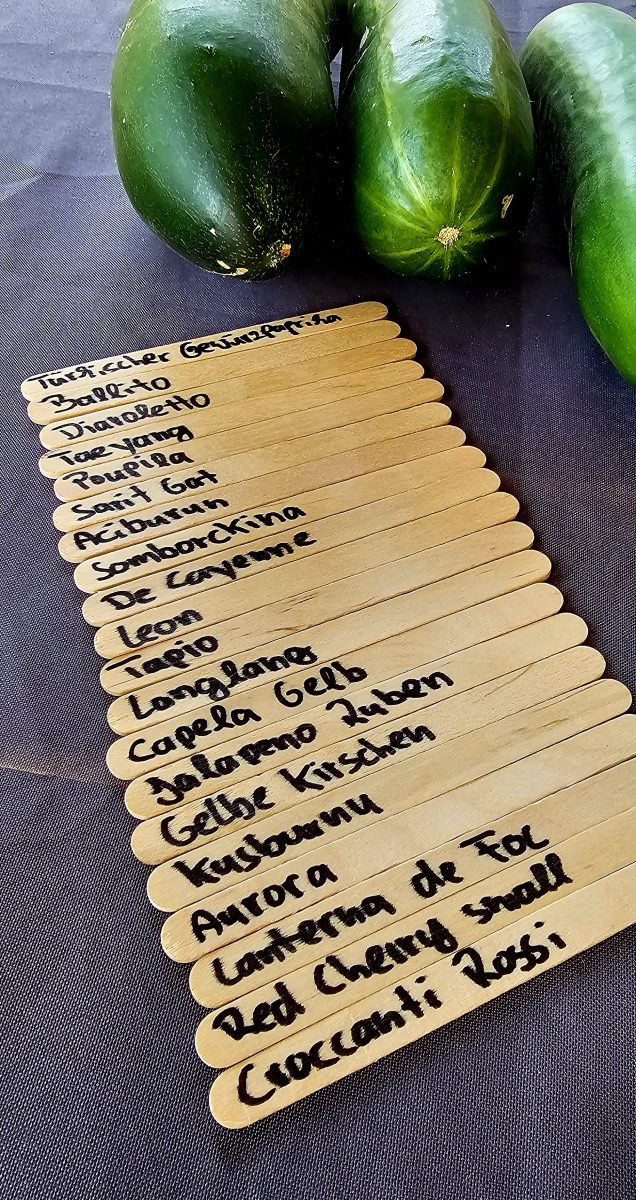 Türkischer Gewürzpaprika
Ballito
Diavoletto
Taeyang
Poupila
Sarit Gat
Aciburun
Somborckina
De Cayenne
Leon
Tapio
Langlang
Capela Gelb
Jalapeno Ruben
Gelbe Kirschen
Kusburnu
Aurora
Lanterna de Foc
Red Cherry small
Croccanti Rossi